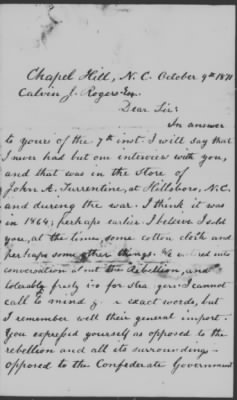 Chapel Hill, N. C. October 9th 1871
Calvin J. Rogers Esq.
Dear Sir:
In answer
to yours of the 7th inst. I will say that
I never had but one interview with you,
and that was in the Store of
John A. Turrentine, at Hillsboro, N.C.
and during the war. I think it was
in 1864; perhaps earlier. I beleive I sold
you, at the time, some cotton cloth and
perhaps some other things. We entered into
conversation about the Rebellion, and
tolarably freely too for strangers. I cannot
call to mind exact words, but
I remember well their general import.
You expressed yourself as opposed to the
rebellion and all its surroundings -
opposed to the Confederate Government